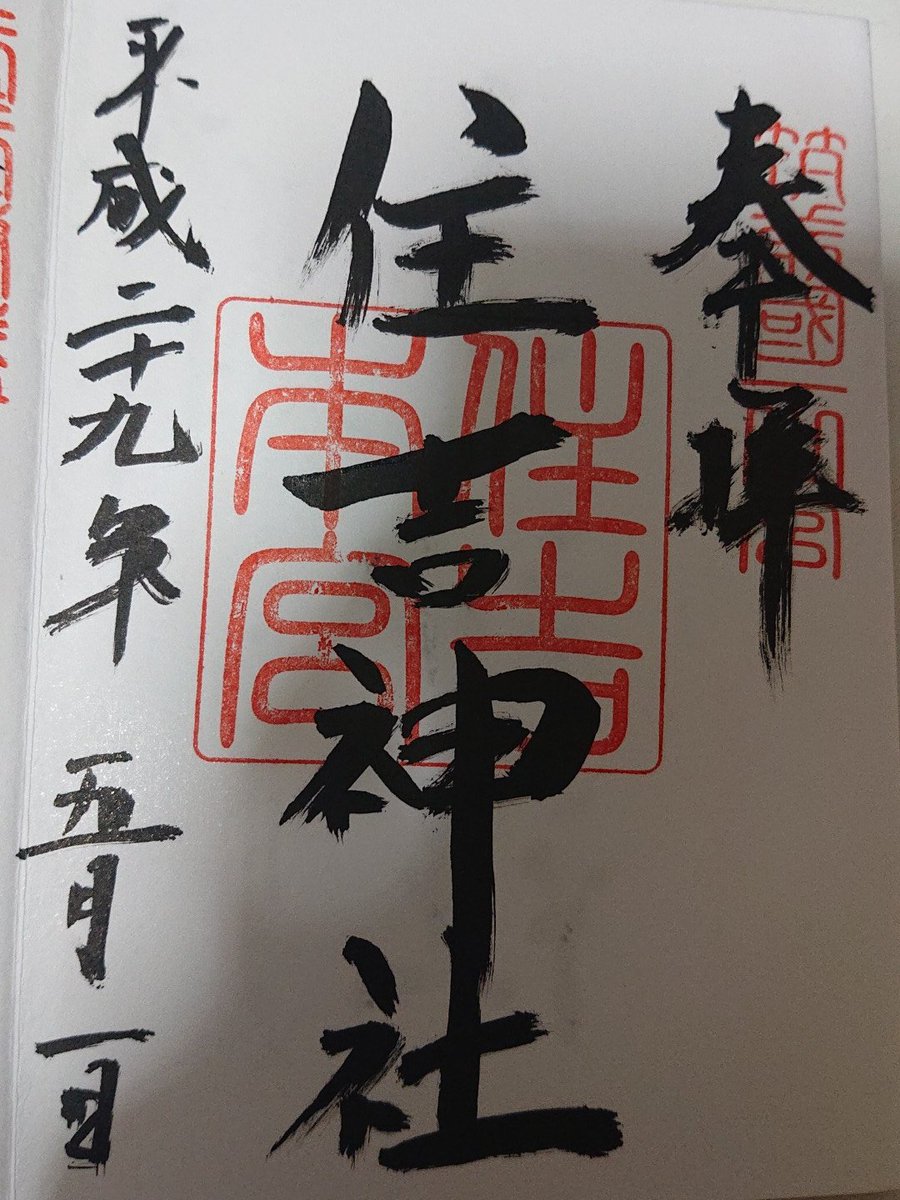 奉拝
筑前國一之宮
住吉神社
住吉本宮
平成二十九年 五月一日